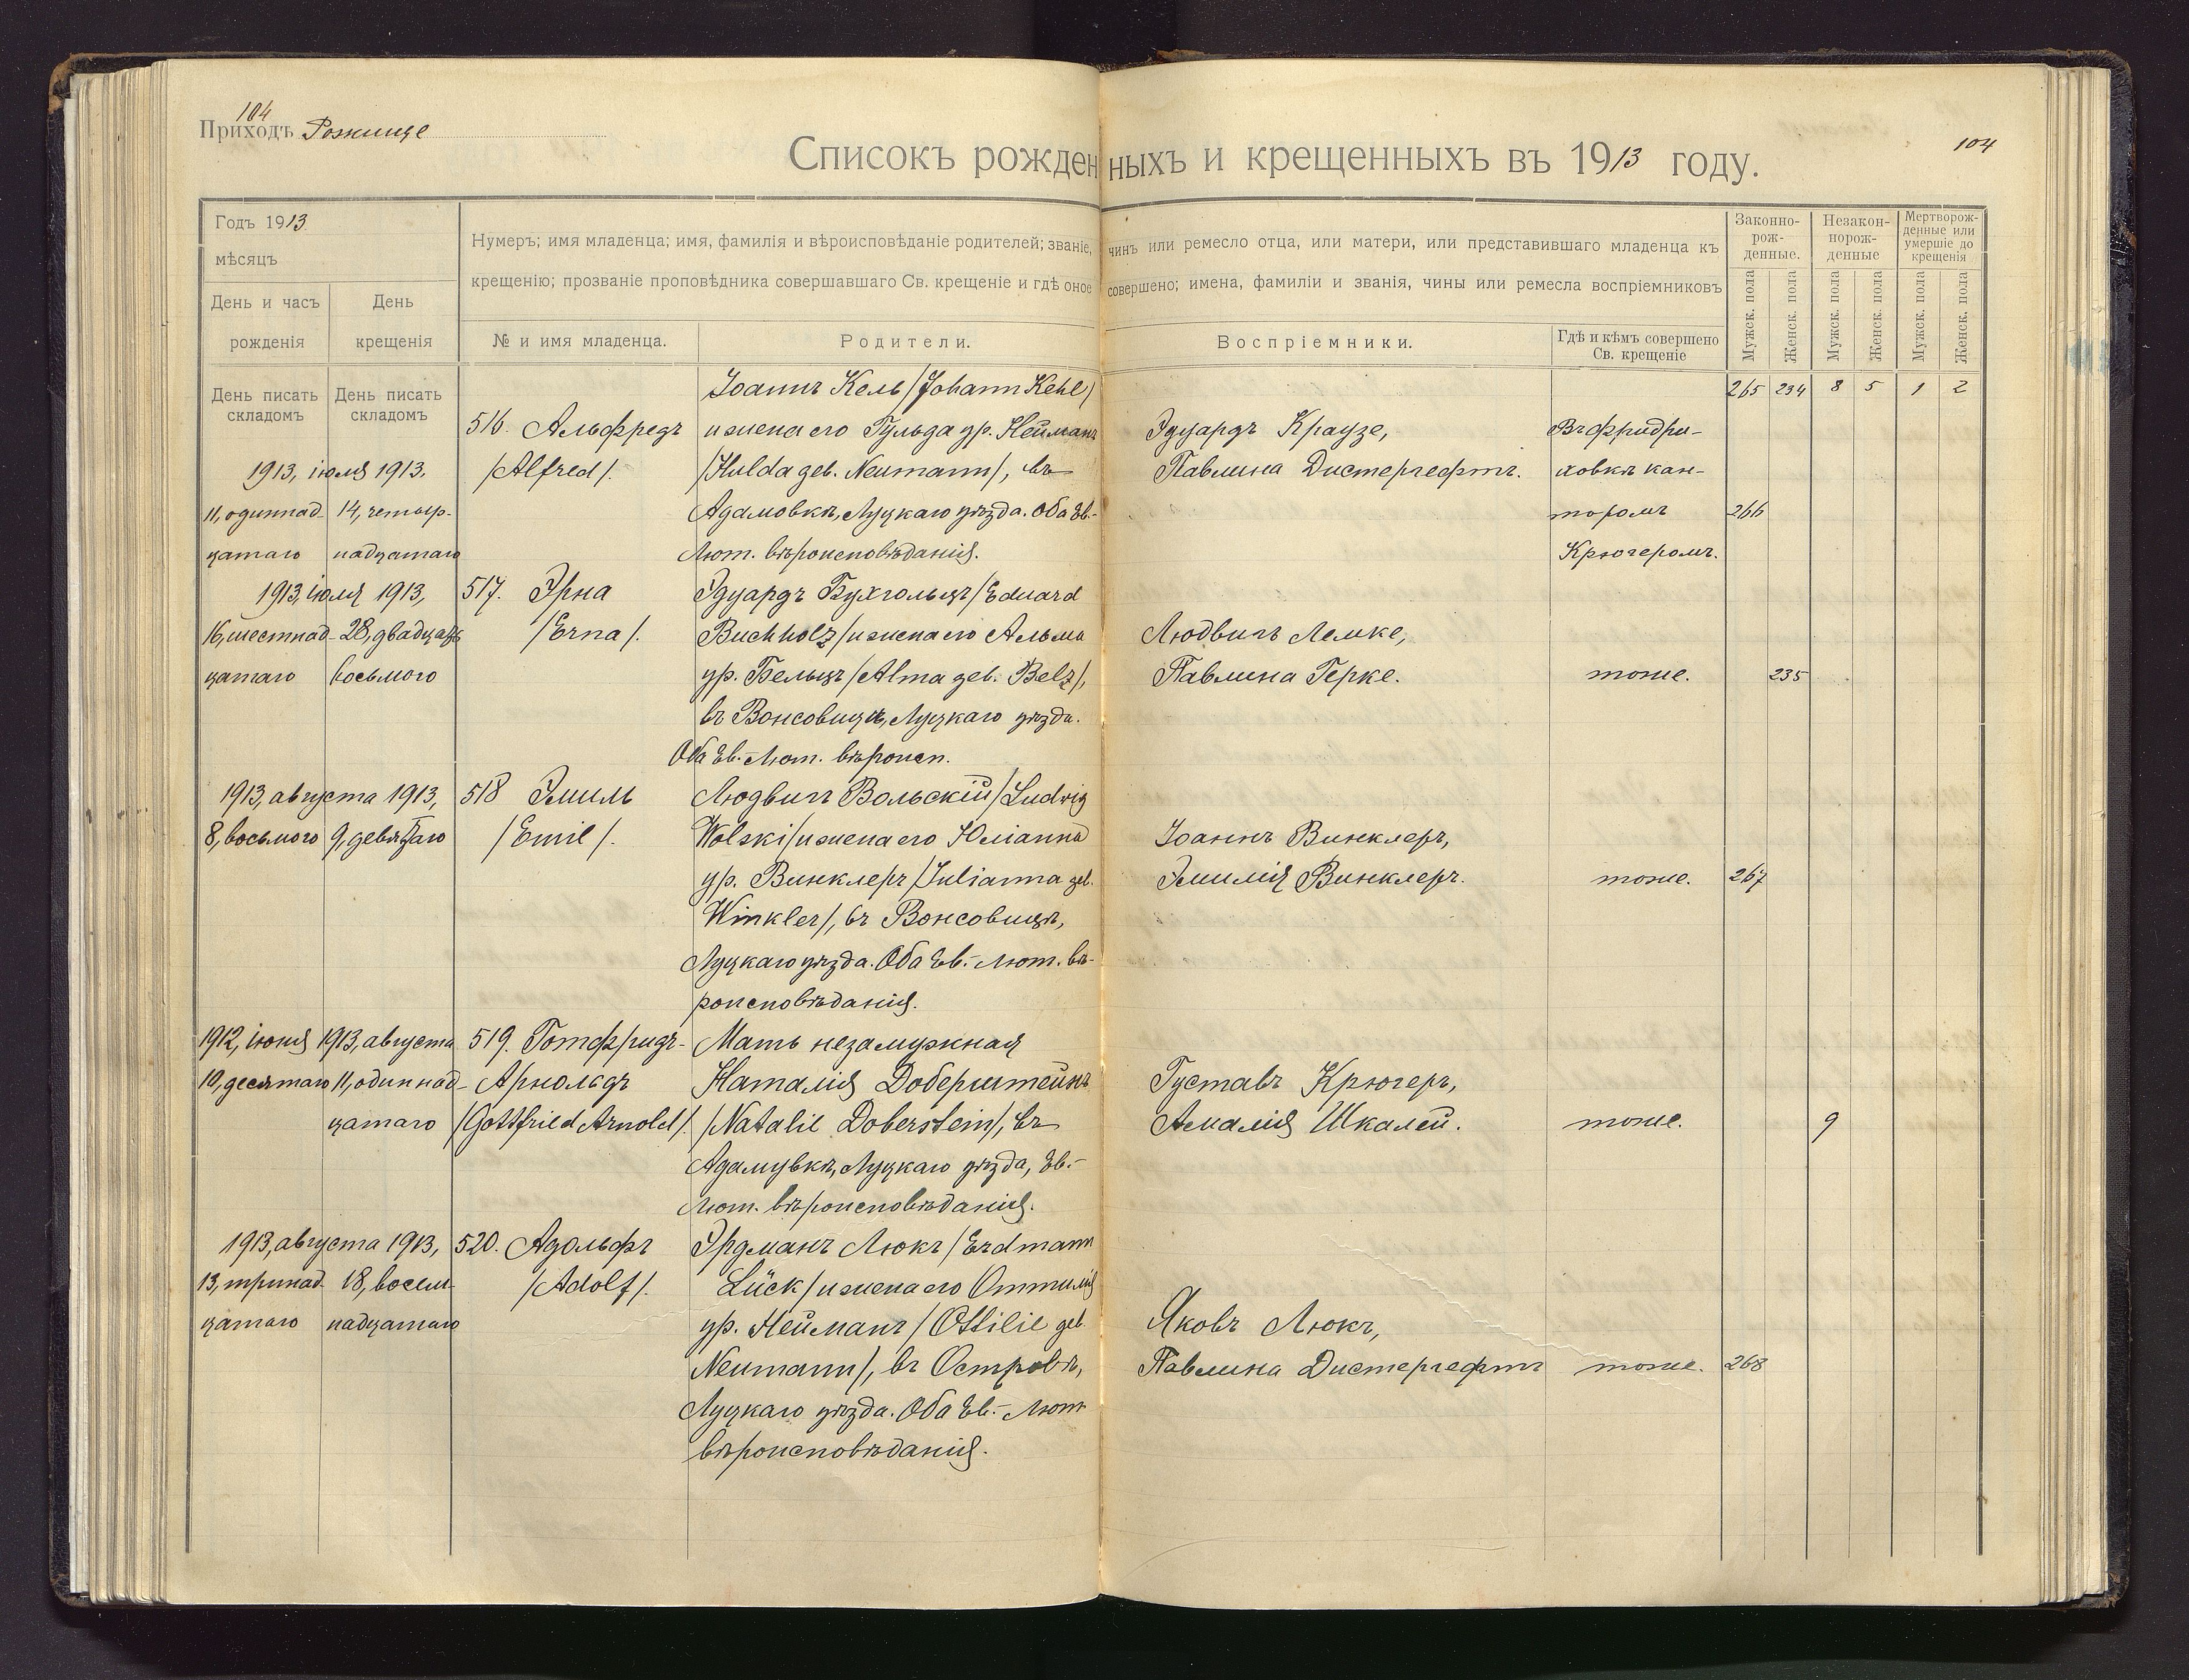 104
Приходъ Рожище
104
Списокъ рожденныхъ и крещенныхъ въ 1913 году.
Годъ 1913
мѣсяцъ
День и часъ рожденія
День крещенія
Нумеръ; имя младенца; имя, фамилія и вѣроисповѣданіе родителей; званіе, чинъ или ремесло отца, или матери, или представившаго младенца къ
крещенію; прозваніе проповѣдника совершавшаго Св. крещеніе и гдѣ оное совершено; имена, фамиліи и званія, чины или ремесла воспріемниковъ
№ и имя младенца.
Родители.
Воспріемники.
Гдѣ и кѣмъ совершено
Св. крещеніе
Законно-
рож-
денные.
Незакон-
норож-
денные
Мертворож-
денные или
умершіе до
крещенія
Мужск. пола
Женск. пола
Мужск. пола
Женск. пола
Мужск. пола
Женск. пола
День писать
складомъ
День писать
складомъ
265 234 8 5 1 2
1913, іюля 1913.
11, одиннад-
цатаго
14, четыр-
надцатаго
516. Альфредъ
/Alfred/.
Іоаннъ Кель /Johann Kehl/
и жена его Гульда ур. Нейманъ
/Hulda geb. Neumann/, въ
Адамовкѣ, Луцкаго уѣзда. Оба Ев.-
Лют. вѣроисповѣданія.
Эдуардъ Краузе,
Павлина Дистергефтъ.
Въ Фридри-
ховкѣ кан-
торомъ
Крюгеромъ.
266
1913, іюля 1913,
16, шестнад-
цатаго
28, двадцать
восьмого
517. Эрна
/Erna/.
Эдуардъ Бухгольцъ /Eduard
Buchholz/ и жена его Альма
ур. Бельцъ /Alma geb. Belz/,
въ Вонсовицѣ, Луцкаго уѣзда.
Оба Ев.-Лют. вѣроисп.
Людвигъ Лемке,
Павлина Герке.
тоже.
235
1913, августа 1913,
8, восьмого
9, девятаго
518 Эмиль
/Emil/.
Людвигъ Вольскій /Ludwig
Wolski/ и жена его Юліанна
ур. Винклеръ /Julianna geb.
Winkler/, въ Вонсовицѣ,
Луцкаго уѣзда. Оба Ев.-Лют. вѣ-
роисповѣданія.
Іоаннъ Винклеръ,
Эмилія Винклеръ.
тоже.
267
1912, іюня
10, десятаго
1913, августа
11, одиннад-
цатаго
519. Готфридъ-
Арнольдъ
/Gottfried Arnold/.
Мать незамужная
Наталія Доберштейнъ
/Natalie Doberstein/, въ
Адамувкѣ, Луцкаго уѣзда, Ев.-
Лют. вѣроисповѣданія.
Густавъ Крюгеръ,
Амалія Шкалей.
тоже.
9
1913, августа 1913,
13, тринад-
цатаго
18, восем-
надцатаго
520. Адольфъ
/Adolf/.
Эрдманъ Люкъ /Erdmann
Lück/ и жена его Оттилія
ур. Нейманъ /Ottilie geb.
Neumann/, въ Островѣ,
Луцкаго уѣзда. Оба Ев.-Лют.
вѣроисповѣданія.
Яковъ Люкъ,
Павлина Дистергефтъ
тоже.
268